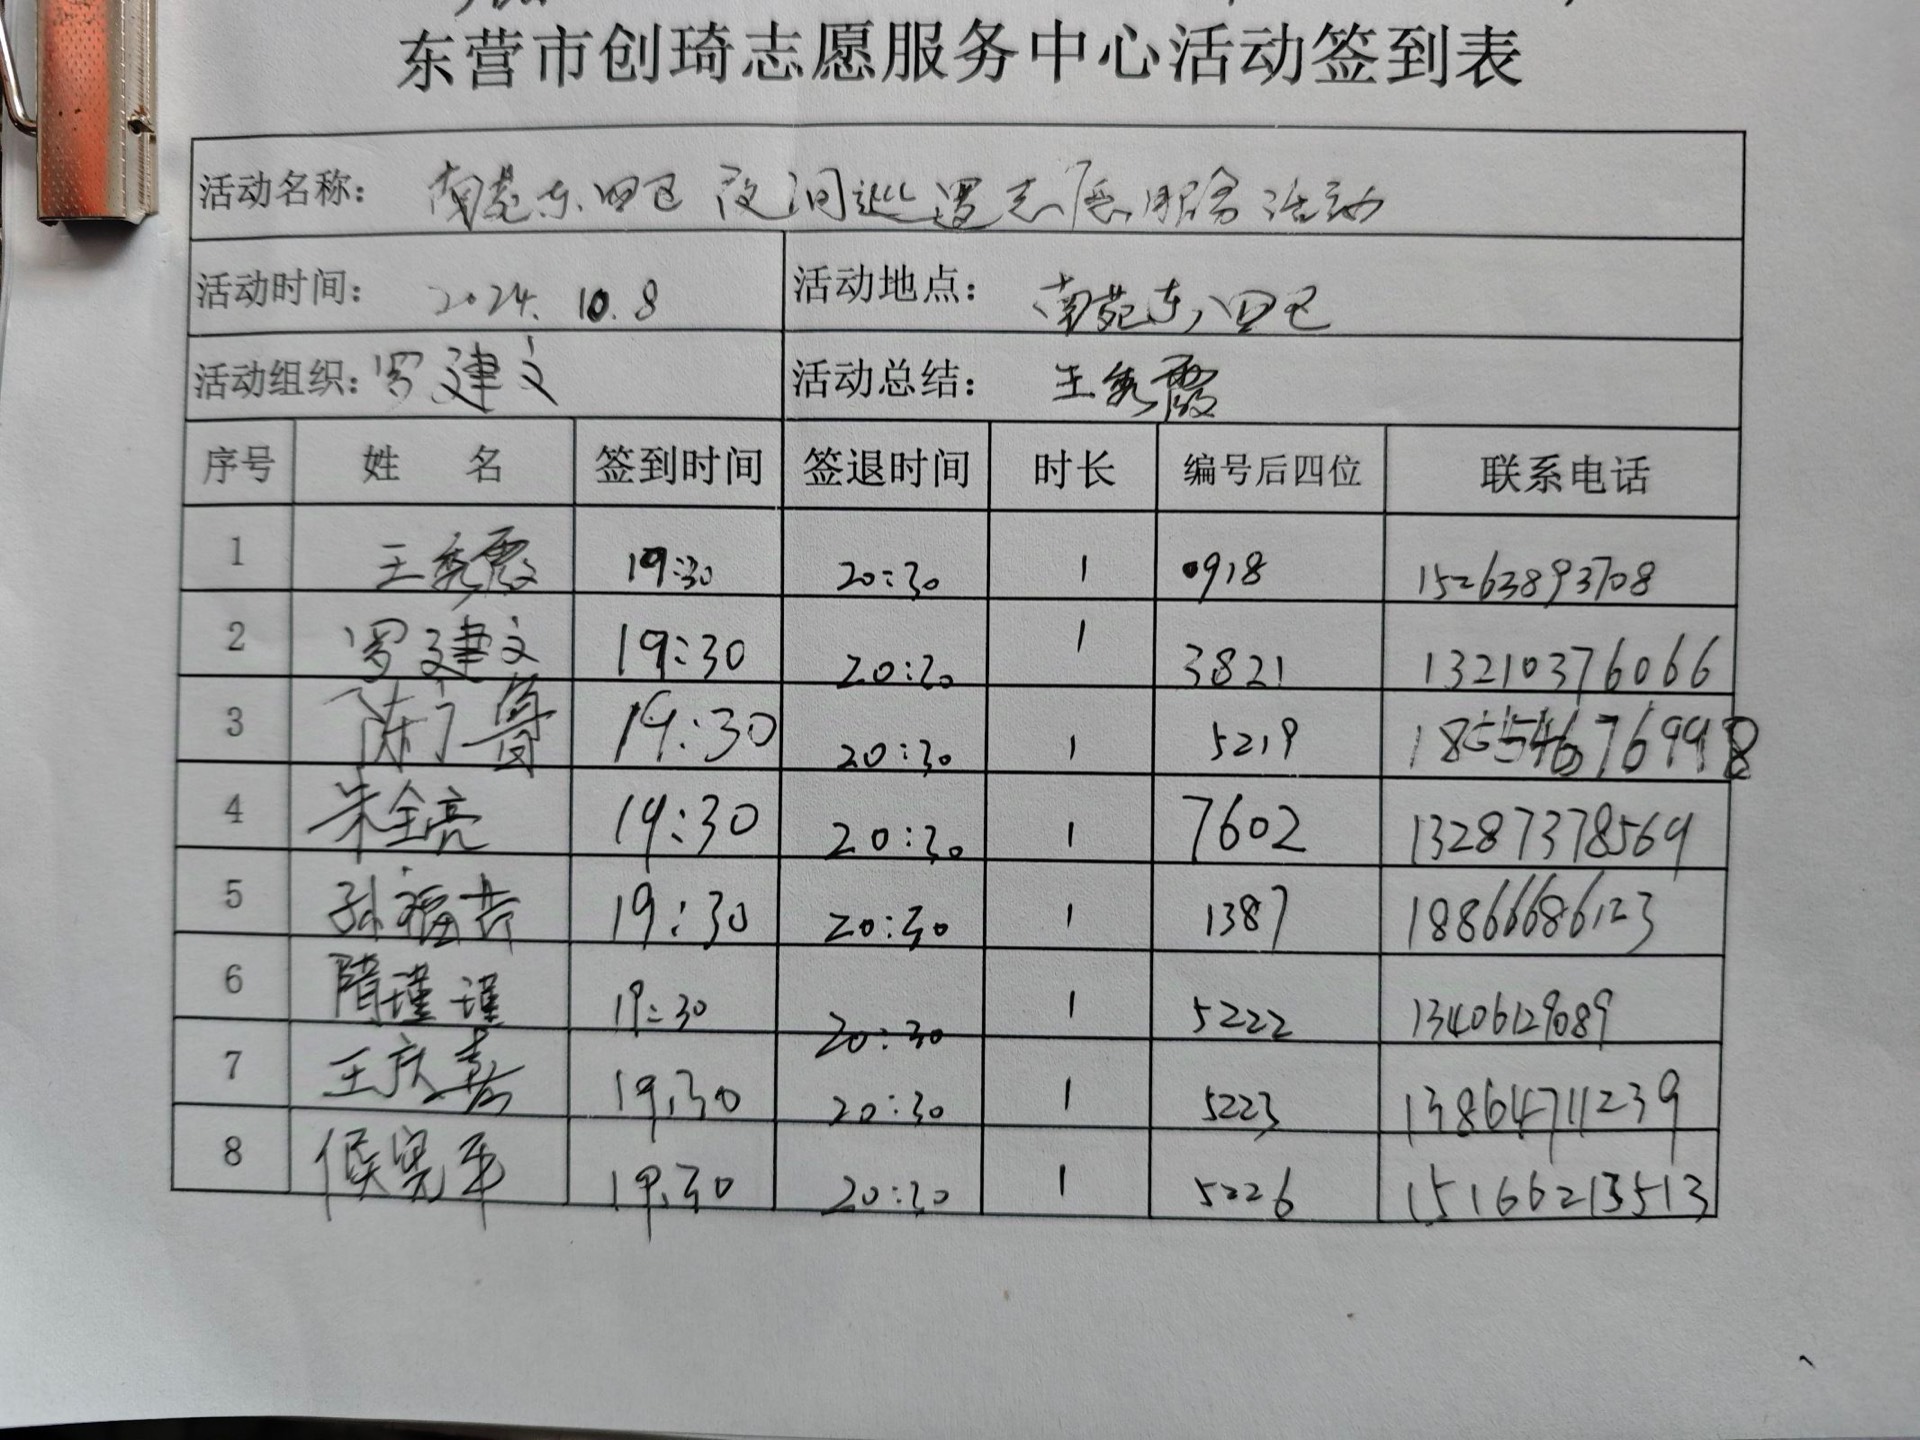 东营市创琦志愿服务中心活动签到表
活动名称: 南苑东四区夜间巡逻志愿服务活动
活动时间: 2024.10.8 活动地点: 南苑东四区
活动组织: 罗建文 活动总结: 王秀霞
序号 姓 名 签到时间 签退时间 时长 编号后四位 联系电话
1 王秀霞 19:30 20:30 1 0918 15263893708
2 罗建文 19:30 20:30 1 3821 13210376066
3 陈广鲁 19:30 20:30 1 5219 18554676998
4 朱全亮 19:30 20:30 1 7602 13287378569
5 孙福 19:30 20:30 1 1387 18866686123
6 隋瑾瑾 19:30 20:30 1 5222 13406129089
7 王庆 19.30 20:30 1 5223 13864711239
8 侯 19.30 20:30 1 5226 15166213513